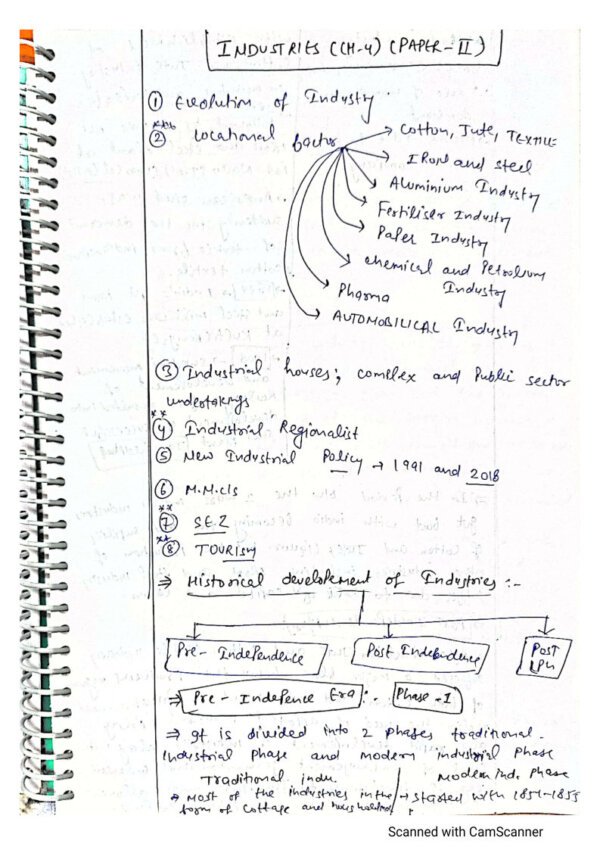 INDUSTRIES (CH-4) (PAPER-II)
① Evolution of Industry
② Locational factor → Cotton, Jute, TEXTILE
→ IRon and steel
→ Aluminium Industry
→ Fertiliser Industry
→ Paper Industry
→ chemical and Petroleum Industry
→ Pharma
→ AUTOMOBILICAL Industry
③ Industrial houses; complex and Public sector
undertakings
** ④ Industrial Regionalist
⑤ New Industrial Policy → 1991 and 2018
⑥ M.N.C/s
** ⑦ S.E.Z
** ⑧ TOURISM
⇒ Historical developement of Industries :-
Pre-Independence Post Independence POST LPG
⇒ Pre-Indepence Era :- Phase-I
⇒ It is divided into 2 phases traditional
Industrial phase and modern industrial phase
Traditional indu. Modern ind. phase
→ Most of the industries in the → started with 1854-1855
form of cottage and households
Scanned with CamScanner